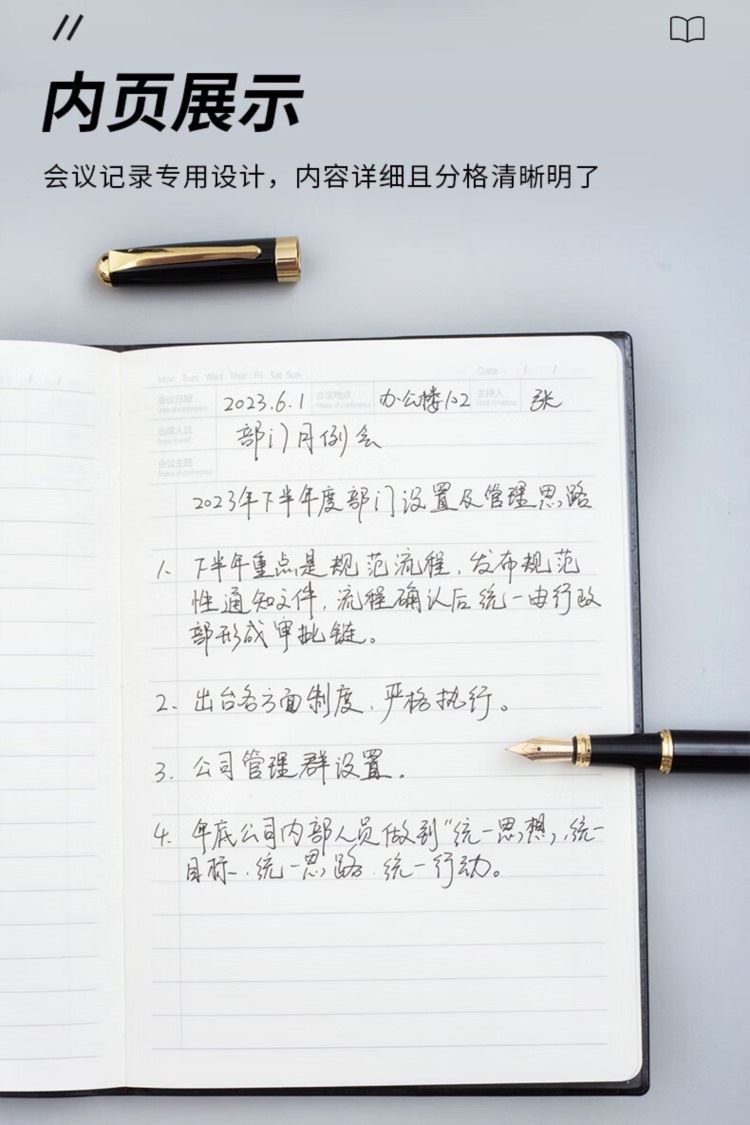 //
内页展示
会议记录专用设计，内容详细且分格清晰明了
Mon Tues Wed Thur Fri Sat Sun Date / /
会议日期 2023.6.1 会议地点 办公楼102 主持人 张
出席人员 部门月例会
会议主题
2023年下半年度部门设置及管理思路
1、下半年重点是规范流程，发布规范
性通知文件，流程确认后统一由行政
部形成审批链。
2、出台各方面制度，严格执行。
3、公司管理群设置。
4、年底公司内部人员做到“统一思想，统一
目标，统一思路，统一行动。